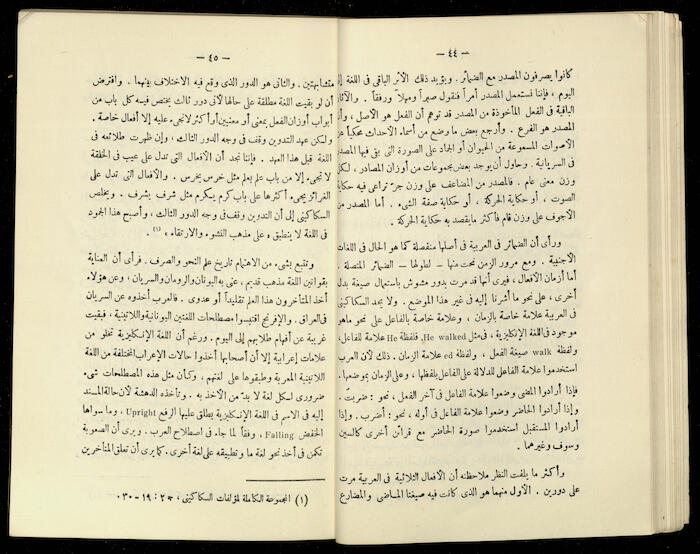 — ٤٤ —
كانوا يصرفون المصدر مع الضمائر . ويؤيد ذلك الأثر الباقى فى اللغة إلى
اليوم ، فإننا نستعمل المصدر أمراً فنقول صبراً ومهلاً ورفقاً . والآثار
الباقية فى الفعل المأخوذة من المصدر قد توهم أن الفعل هو الأصل ، وأن
المصدر هو الفرع . وأرجع بعض ما وضع من أسماء الأحداث محكياً عن
الأصوات المسموعة من الحيوان أو الجماد على الصورة التى بقى فيها المصدر
فى السريانية . وحاول أن يوجد بعض مجموعات من أوزان المصادر ، لكل
وزن معنى عام . فالمصدر من المضاعف على وزن جرّ تراعى فيه حكاية
الصوت ، أو حكاية الحركة ، أو حكاية صفة الشىء . أما المصدر من
الأجوف على وزن قام فأكثر ما يقصد به حكاية الحركة .
ورأى أن الضمائر فى العربية فى أصلها منفصلة كما هو الحال فى اللغات
الأجنبية . ومع مرور الزمن نحت منها — لطولها — الضمائر المتصلة .
أما أزمان الأفعال ، فيرى أنها قد مرت بدور مشوش باستعمال صيغة بدل
أخرى ، على نحو ما أشرنا إليه فى غير هذا الموضع . ولا يجد السكاكينى
فى العربية علامة خاصة بالزمان ، وعلامة خاصة بالفاعل على نحو ماهو
موجود فى اللغة الإنكليزية ، فى مثل He walked، فلفظة He علامة للفاعل،
ولفظة walk صيغة الفعل ، ولفظة ed علامة الزمان . ذلك لأن العرب
استخدموا علامة الفاعل للدلالة على الفاعل بلفظها ، وعلى الزمان بموضعها .
فإذا أرادوا المضى وضعوا علامة الفاعل فى آخر الفعل ، نحو : ضربت .
وإذا أرادوا الحاضر وضعوا علامة الفاعل فى أوله ، نحو : أضرب . وإذا
أرادوا المستقبل استخدموا صورة الحاضر مع قرائن أخرى كالسين
وسوف وغيرهما .
وأكثر ما يلفت النظر ملاحظته أن الأفعال الثلاثية فى العربية مرت
على دورين . الأول منهما هو الذى كانت فيه صيغتا الماضى والمضارع
— ٤٥ —
متشابهتين . والثانى هو الدور الذى وقع فيه الاختلاف بينهما . وافترض
أن لو بقيت اللغة مطلقة على حالها لأتى دور ثالث يختص فيه كل باب من
أبواب أوزان الفعل بمعنى أو معنيين أو أكثر لاتجىء عليه إلا أفعال خاصة .
ولكن عهد التدوين وقف فى وجه الدور الثالث ، وإن ظهرت طلائعه فى
اللغة قبل هذا العهد . فإننا نجد أن الأفعال التى تدل على عيب فى الخلقة
لا تجىء إلا من باب علم يعلم مثل خرس يخرس . والأفعال التى تدل على
الغرائز يجىء أكثرها على باب كرم يكرم مثل شرف يشرف . ويخلص
السكاكينى إلى أن التدوين وقف فى وجه الدور الثالث ، وأصبح هذا الجمود
فى اللغة لا ينطبق على مذهب النشوء والارتقاء ، (١) .
وتتبع بشىء من الاهتمام تاريخ علم النحو والصرف . فرأى أن العناية
بقوانين اللغة مذهب قديم ، عنى به اليونان والرومان والسريان ، وعن هؤلاء
أخذ المتأخرون هذا العلم تقليداً أو عدوى . فالعرب أخذوه عن السريان
فى العراق . والإفرنج اقتبسوا مصطلحات اللغتين اليونانية واللاتينية ، فبقيت
غريبة عن أفهام طلابهم إلى اليوم . ورغم أن اللغة الإنكليزية تخلو من
علامات إعرابية إلا أن أصحابها أخذوا حالات الإعراب المختلفة من اللغة
اللاتينية المعربة وطبقوها على لغتهم ، وكأن مثل هذه المصطلحات شىء
ضرورى لكل لغة لا بد من الأخذ به . وتأخذه الدهشة لأن حالة المسند
إليه فى الاسم فى اللغة الإنكليزية يطلق عليها الرفع Upright ، وما سواها
الخفض Falling ، وفقاً لما جاء فى اصطلاح العرب . ويرى أن الصعوبة
تكمن فى أخذ نحو لغة ما وتطبيقه على لغة أخرى . كما يرى أن تعلق المتأخرين
(١) المجموعة الكاملة لمؤلفات السكاكينى ، ج ٢ : ١٩ - ٣٠ .